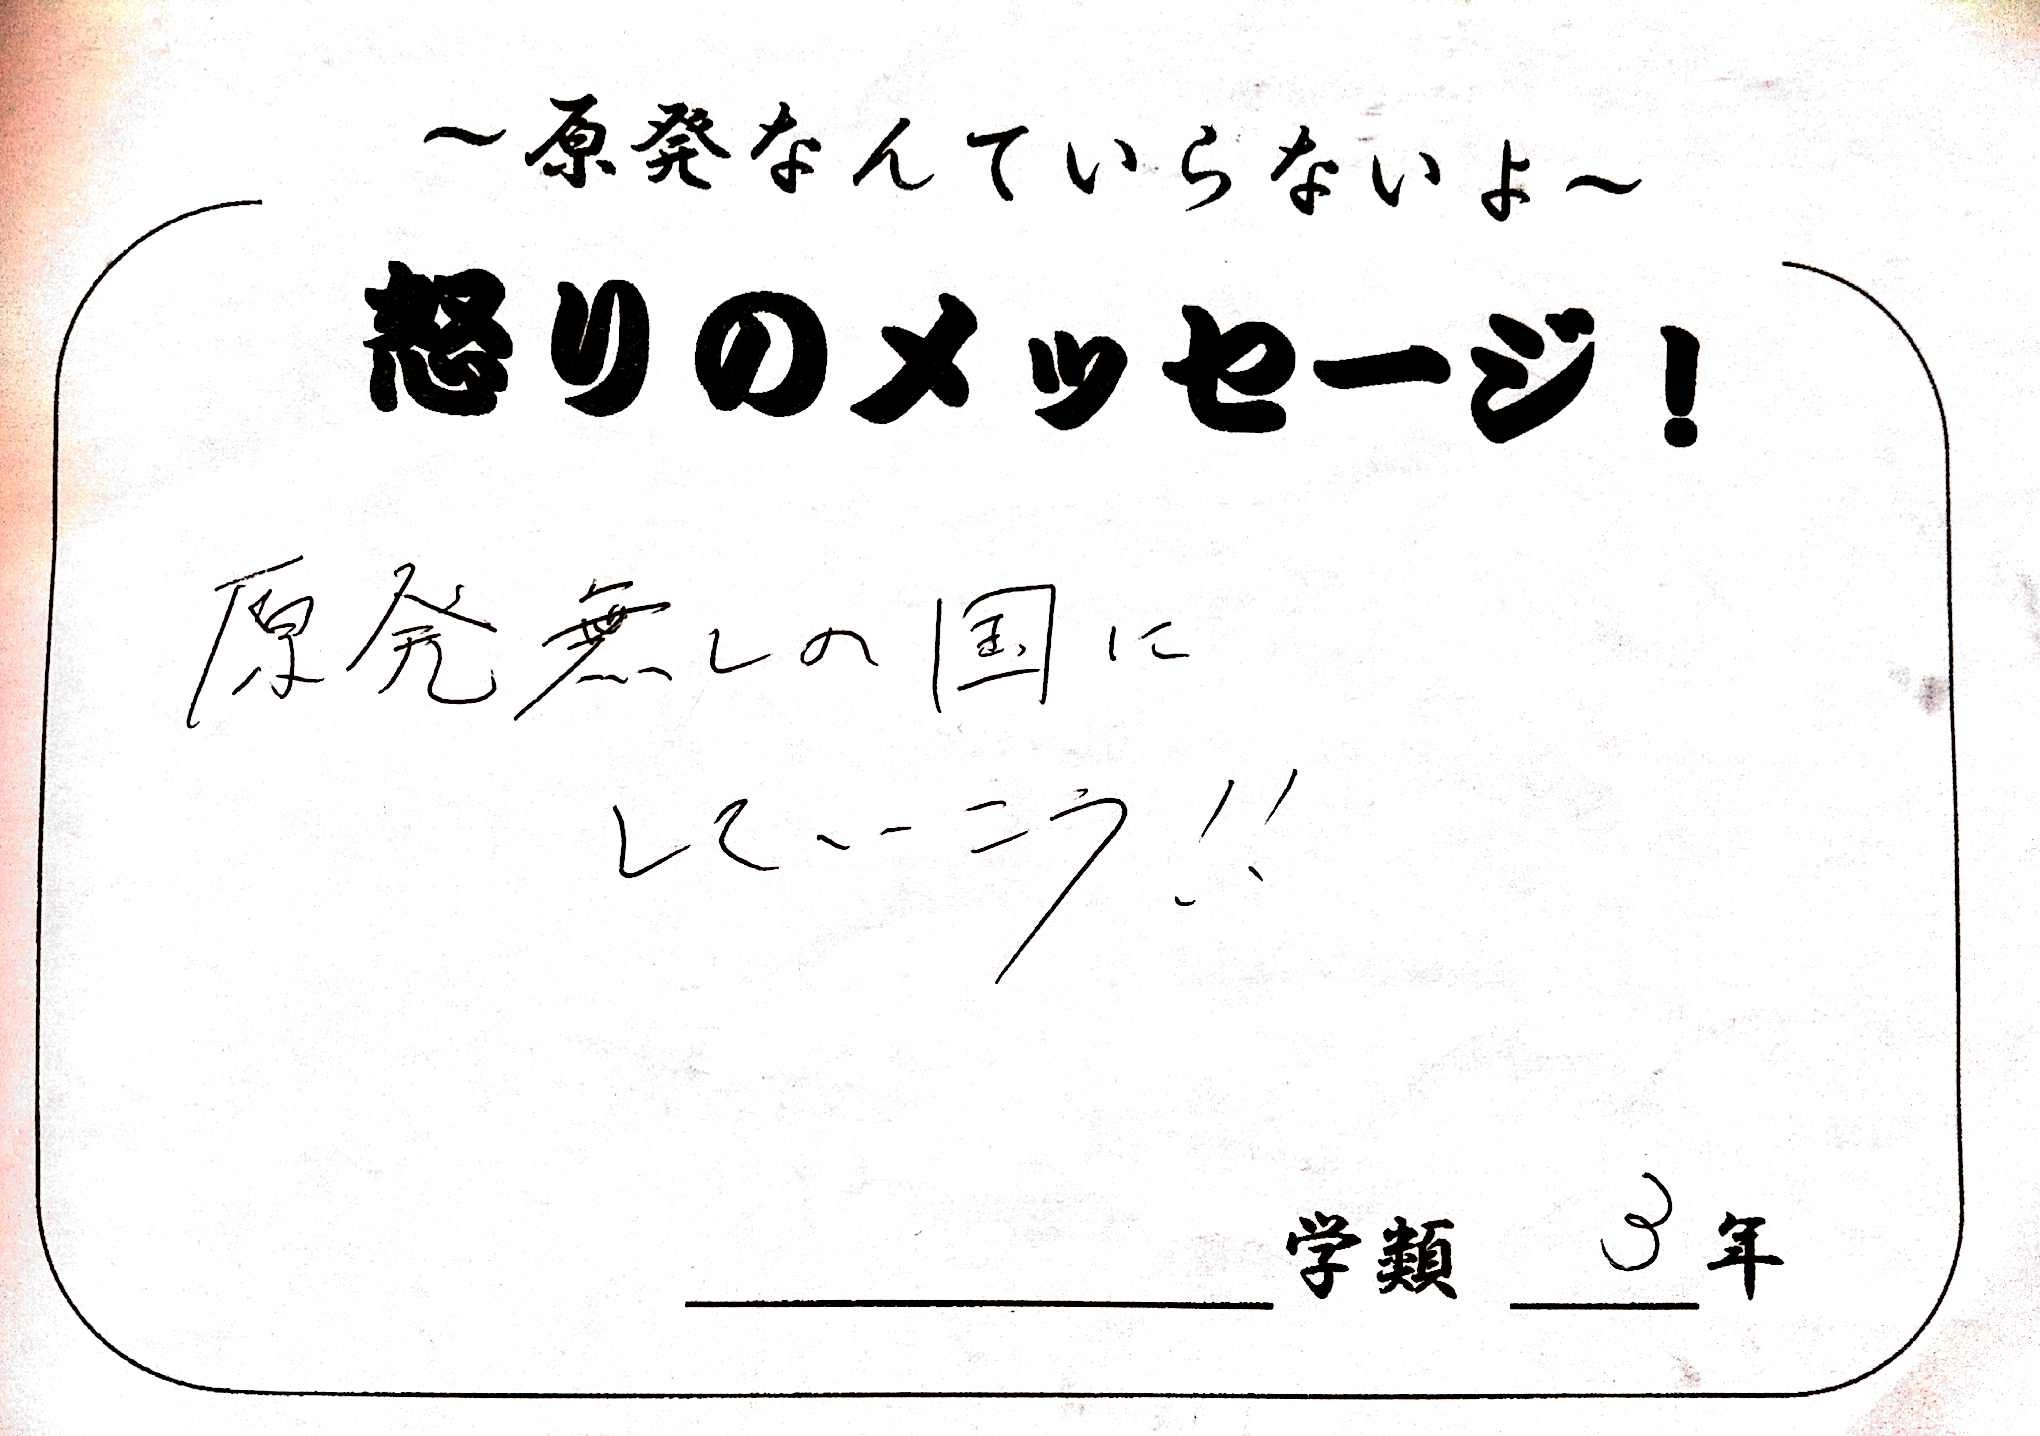 ～原発なんていらないよ～
怒りのメッセージ！
原発無しの国に
していこう！！
学類 3年